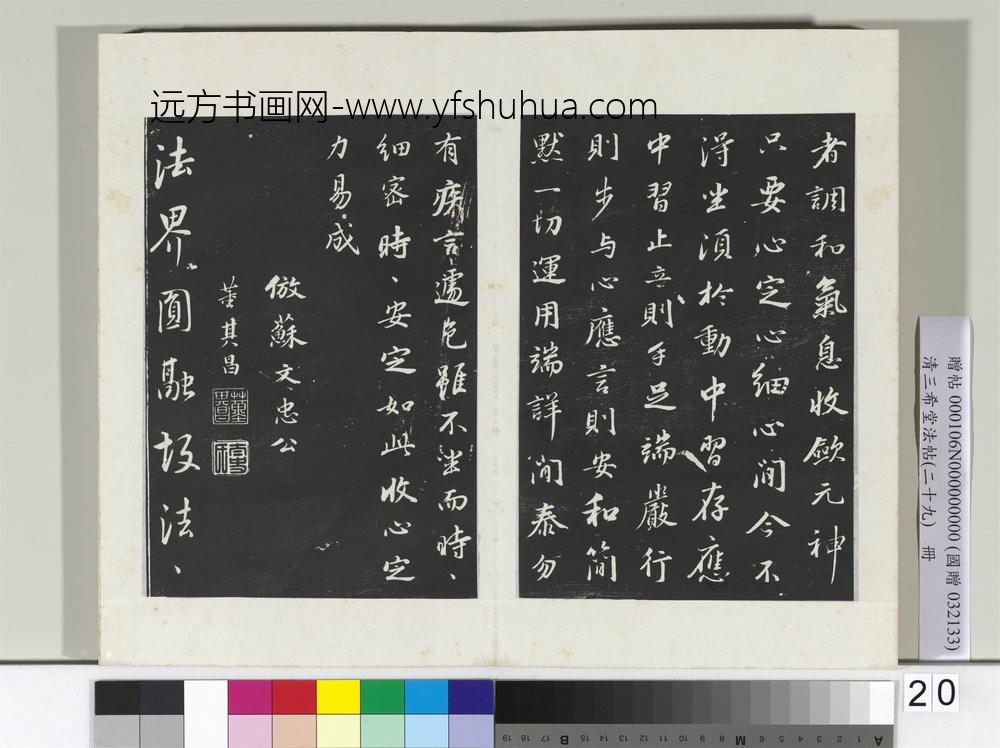 远方书画网-www.yfshuhua.com
者調和氣息收斂元神
只要心定心細心閒今不
得坐須於動中習存應
中習止立則手足端嚴行
則步与心應言則安和簡
默一切運用端詳閒泰勿
有疾言遽色雖不坐而時、
細密時、安定如此收心定
力易成
倣蘇文忠公
董其昌
法界圓融故法、
贈帖 000106N000000000 (國贈 032133)
清三希堂法帖(二十九) 冊
20
A 1 2 3 4 5 6 M 8 9 10 11 12 13 14 15 B 17 18 19